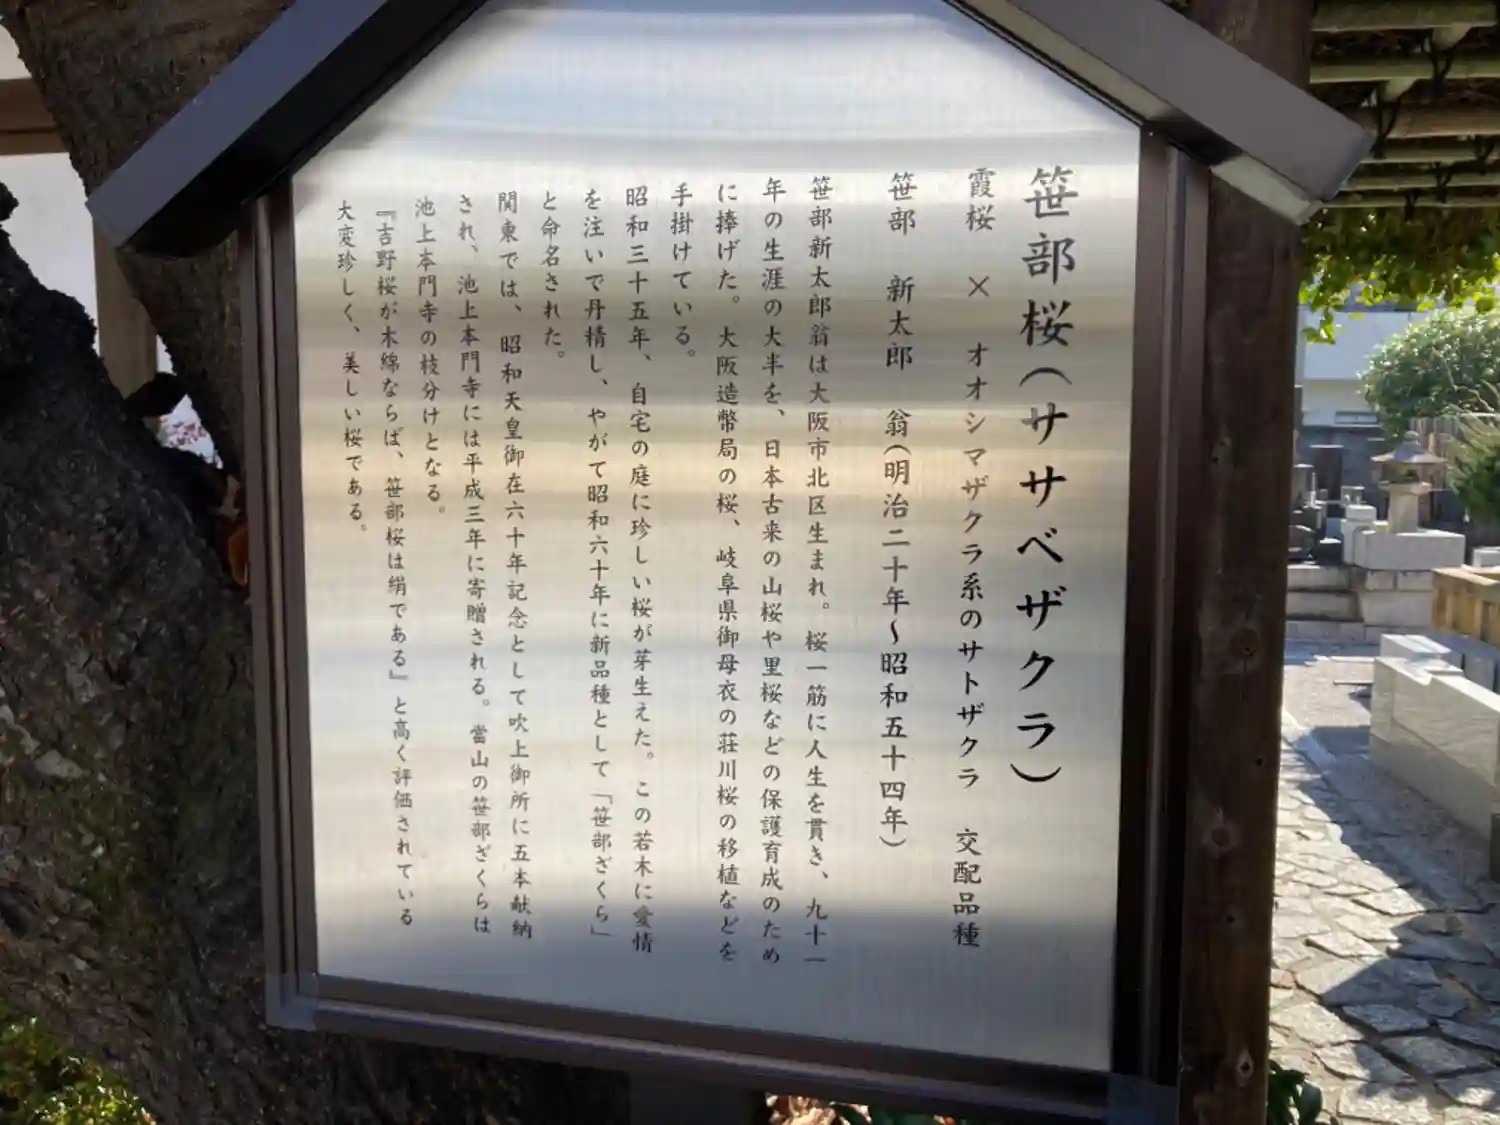 笹部桜（ササベザクラ）
霞桜　×　オオシマザクラ系のサトザクラ　交配品種
笹部　新太郎　翁（明治二十年〜昭和五十四年）
笹部新太郎翁は大阪市北区生まれ。桜一筋に人生を貫き、九十一
年の生涯の大半を、日本古来の山桜や里桜などの保護育成のため
に捧げた。大阪造幣局の桜、岐阜県御母衣の荘川桜の移植などを
手掛けている。
昭和三十五年、自宅の庭に珍しい桜が芽生えた。この若木に愛情
を注いで丹精し、やがて昭和六十年に新品種として「笹部ざくら」
と命名された。
関東では、昭和天皇御在六十年記念として吹上御所に五本献納
され、池上本門寺には平成三年に寄贈される。當山の笹部ざくらは
池上本門寺の枝分けとなる。
『吉野桜が木綿ならば、笹部桜は絹である』と高く評価されている
大変珍しく、美しい桜である。